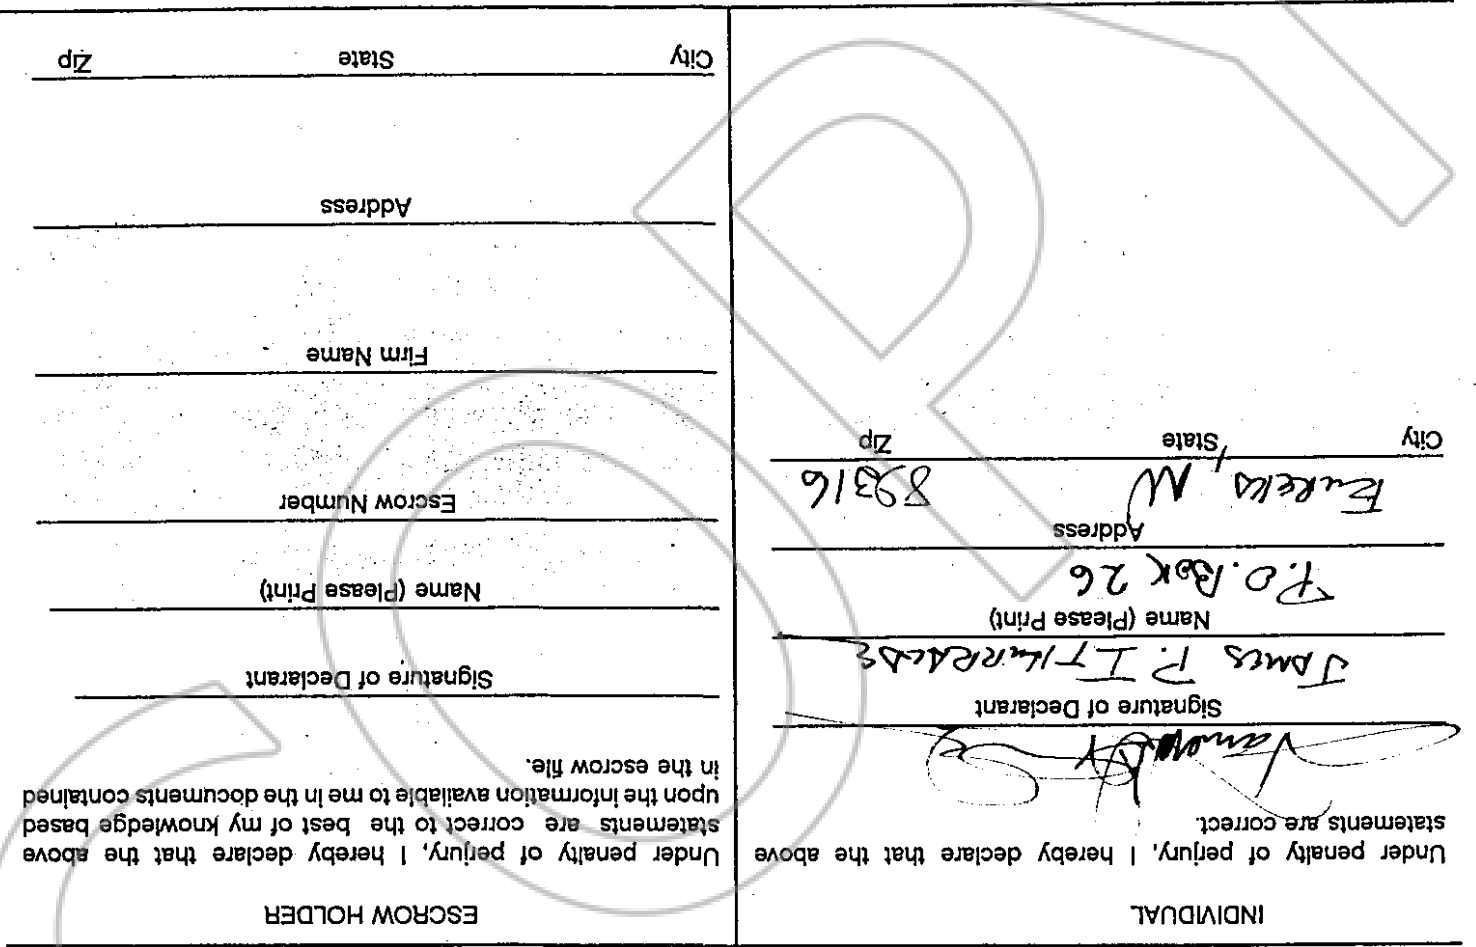 INDIVIDUAL
Under penalty of perjury, I hereby declare that the above
statements are correct.
Signature of Declarant
JAMES P. ITHURRALDE
Name (Please Print)
P.O. Box 26
Address
Eureka, NV 89316
City State Zip
ESCROW HOLDER
Under penalty of perjury, I hereby declare that the above
statements are correct to the best of my knowledge based
upon the information available to me in the documents contained
in the escrow file.
Signature of Declarant
Name (Please Print)
Escrow Number
Firm Name
Address
City State Zip
COPY